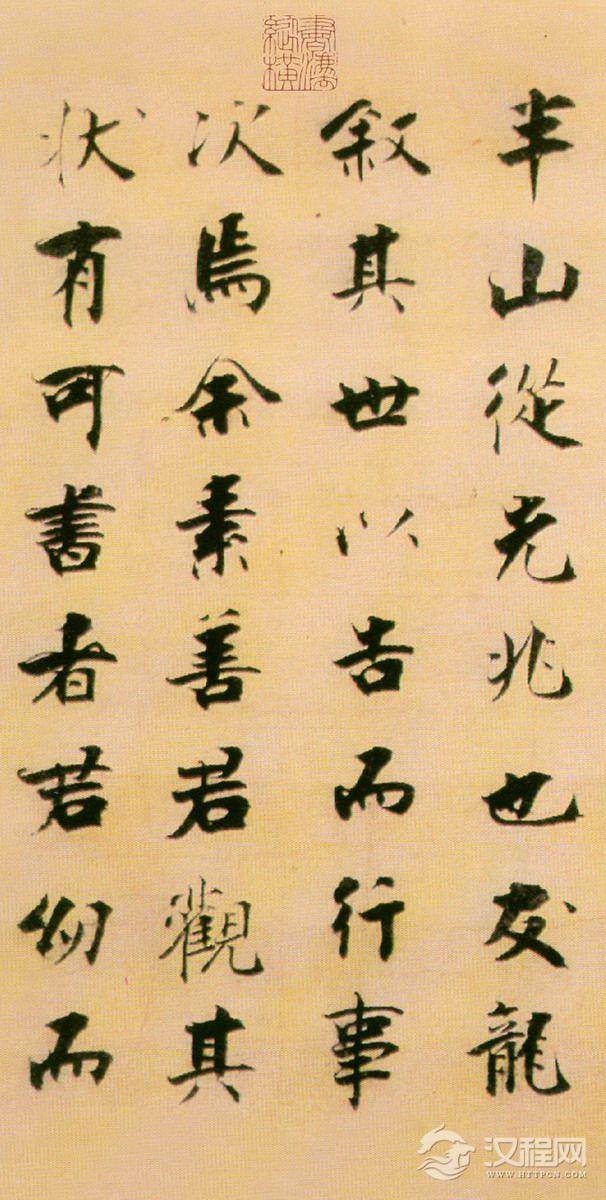 半山從先兆也友龍
叙其世以告而行事
次焉余素善君觀其
状有可書者君幼而
汉程网
WWW.HTTPCN.COM